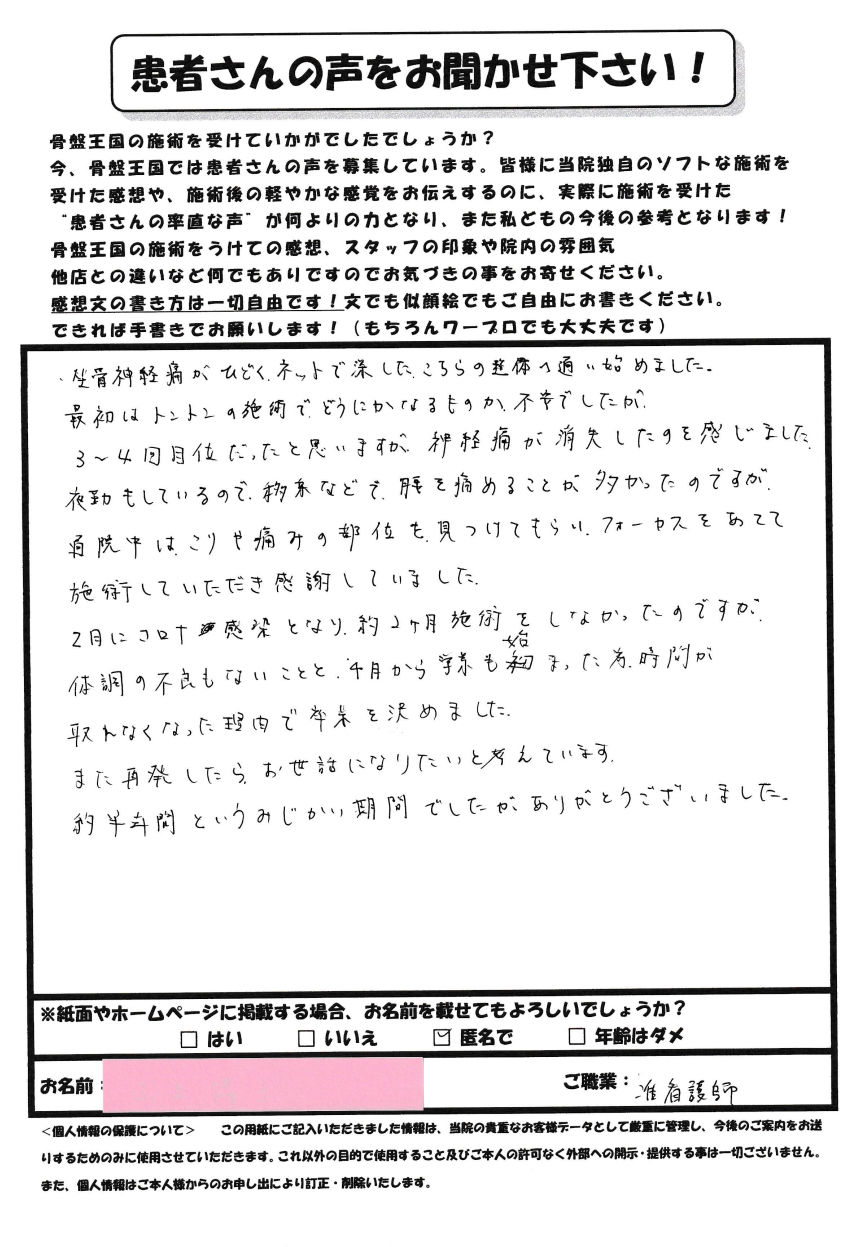 患者さんの声をお聞かせ下さい！
骨盤王国の施術を受けていかがでしたでしょうか？
今、骨盤王国では患者さんの声を募集しています。皆様に当院独自のソフトな施術を
受けた感想や、施術後の軽やかな感覚をお伝えするのに、実際に施術を受けた
“患者さんの率直な声”が何よりの力となり、また私どもの今後の参考となります！
骨盤王国の施術をうけての感想、スタッフの印象や院内の雰囲気
他店との違いなど何でもありですのでお気づきの事をお寄せください。
感想文の書き方は一切自由です！文でも似顔絵でもご自由にお書きください。
できれば手書きでお願いします！（もちろんワープロでも大丈夫です）
坐骨神経痛がひどく、ネットで深した、こちらの整体へ通い始めました。
最初はトントンの施術で、どうにかなるものか、不安でしたが、
3〜4回目位だったと思いますが、神経痛が消失したのを感じました。
夜勤もしているので、移乗などで、腰を痛めることが多かったのですが、
通院中は、こりや痛みの部位を、見つけてもらい、フォーカスをあてて
施術していただき感謝していました。
2月にコロナ感染となり、約2ヶ月施術をしなかったのですが、
体調の不良もないことと、4月から学業も始まった為、時間が
取れなくなった理由で卒業を決めました。
また再発したら、お世話になりたいと考えています。
約半年間というみじかい期間でしたが、ありがとうございました。
※紙面やホームページに掲載する場合、お名前を載せてもよろしいでしょうか？
□ はい □ いいえ ☑ 匿名で □ 年齢はダメ
お名前： ご職業：准看護師
＜個人情報の保護について＞ この用紙にご記入いただきました情報は、当院の貴重なお客様データとして厳重に管理し、今後のご案内をお送
りするためのみに使用させていただきます。これ以外の目的で使用すること及びご本人の許可なく外部への開示・提供する事は一切ございません。
また、個人情報はご本人様からのお申し出により訂正・削除いたします。